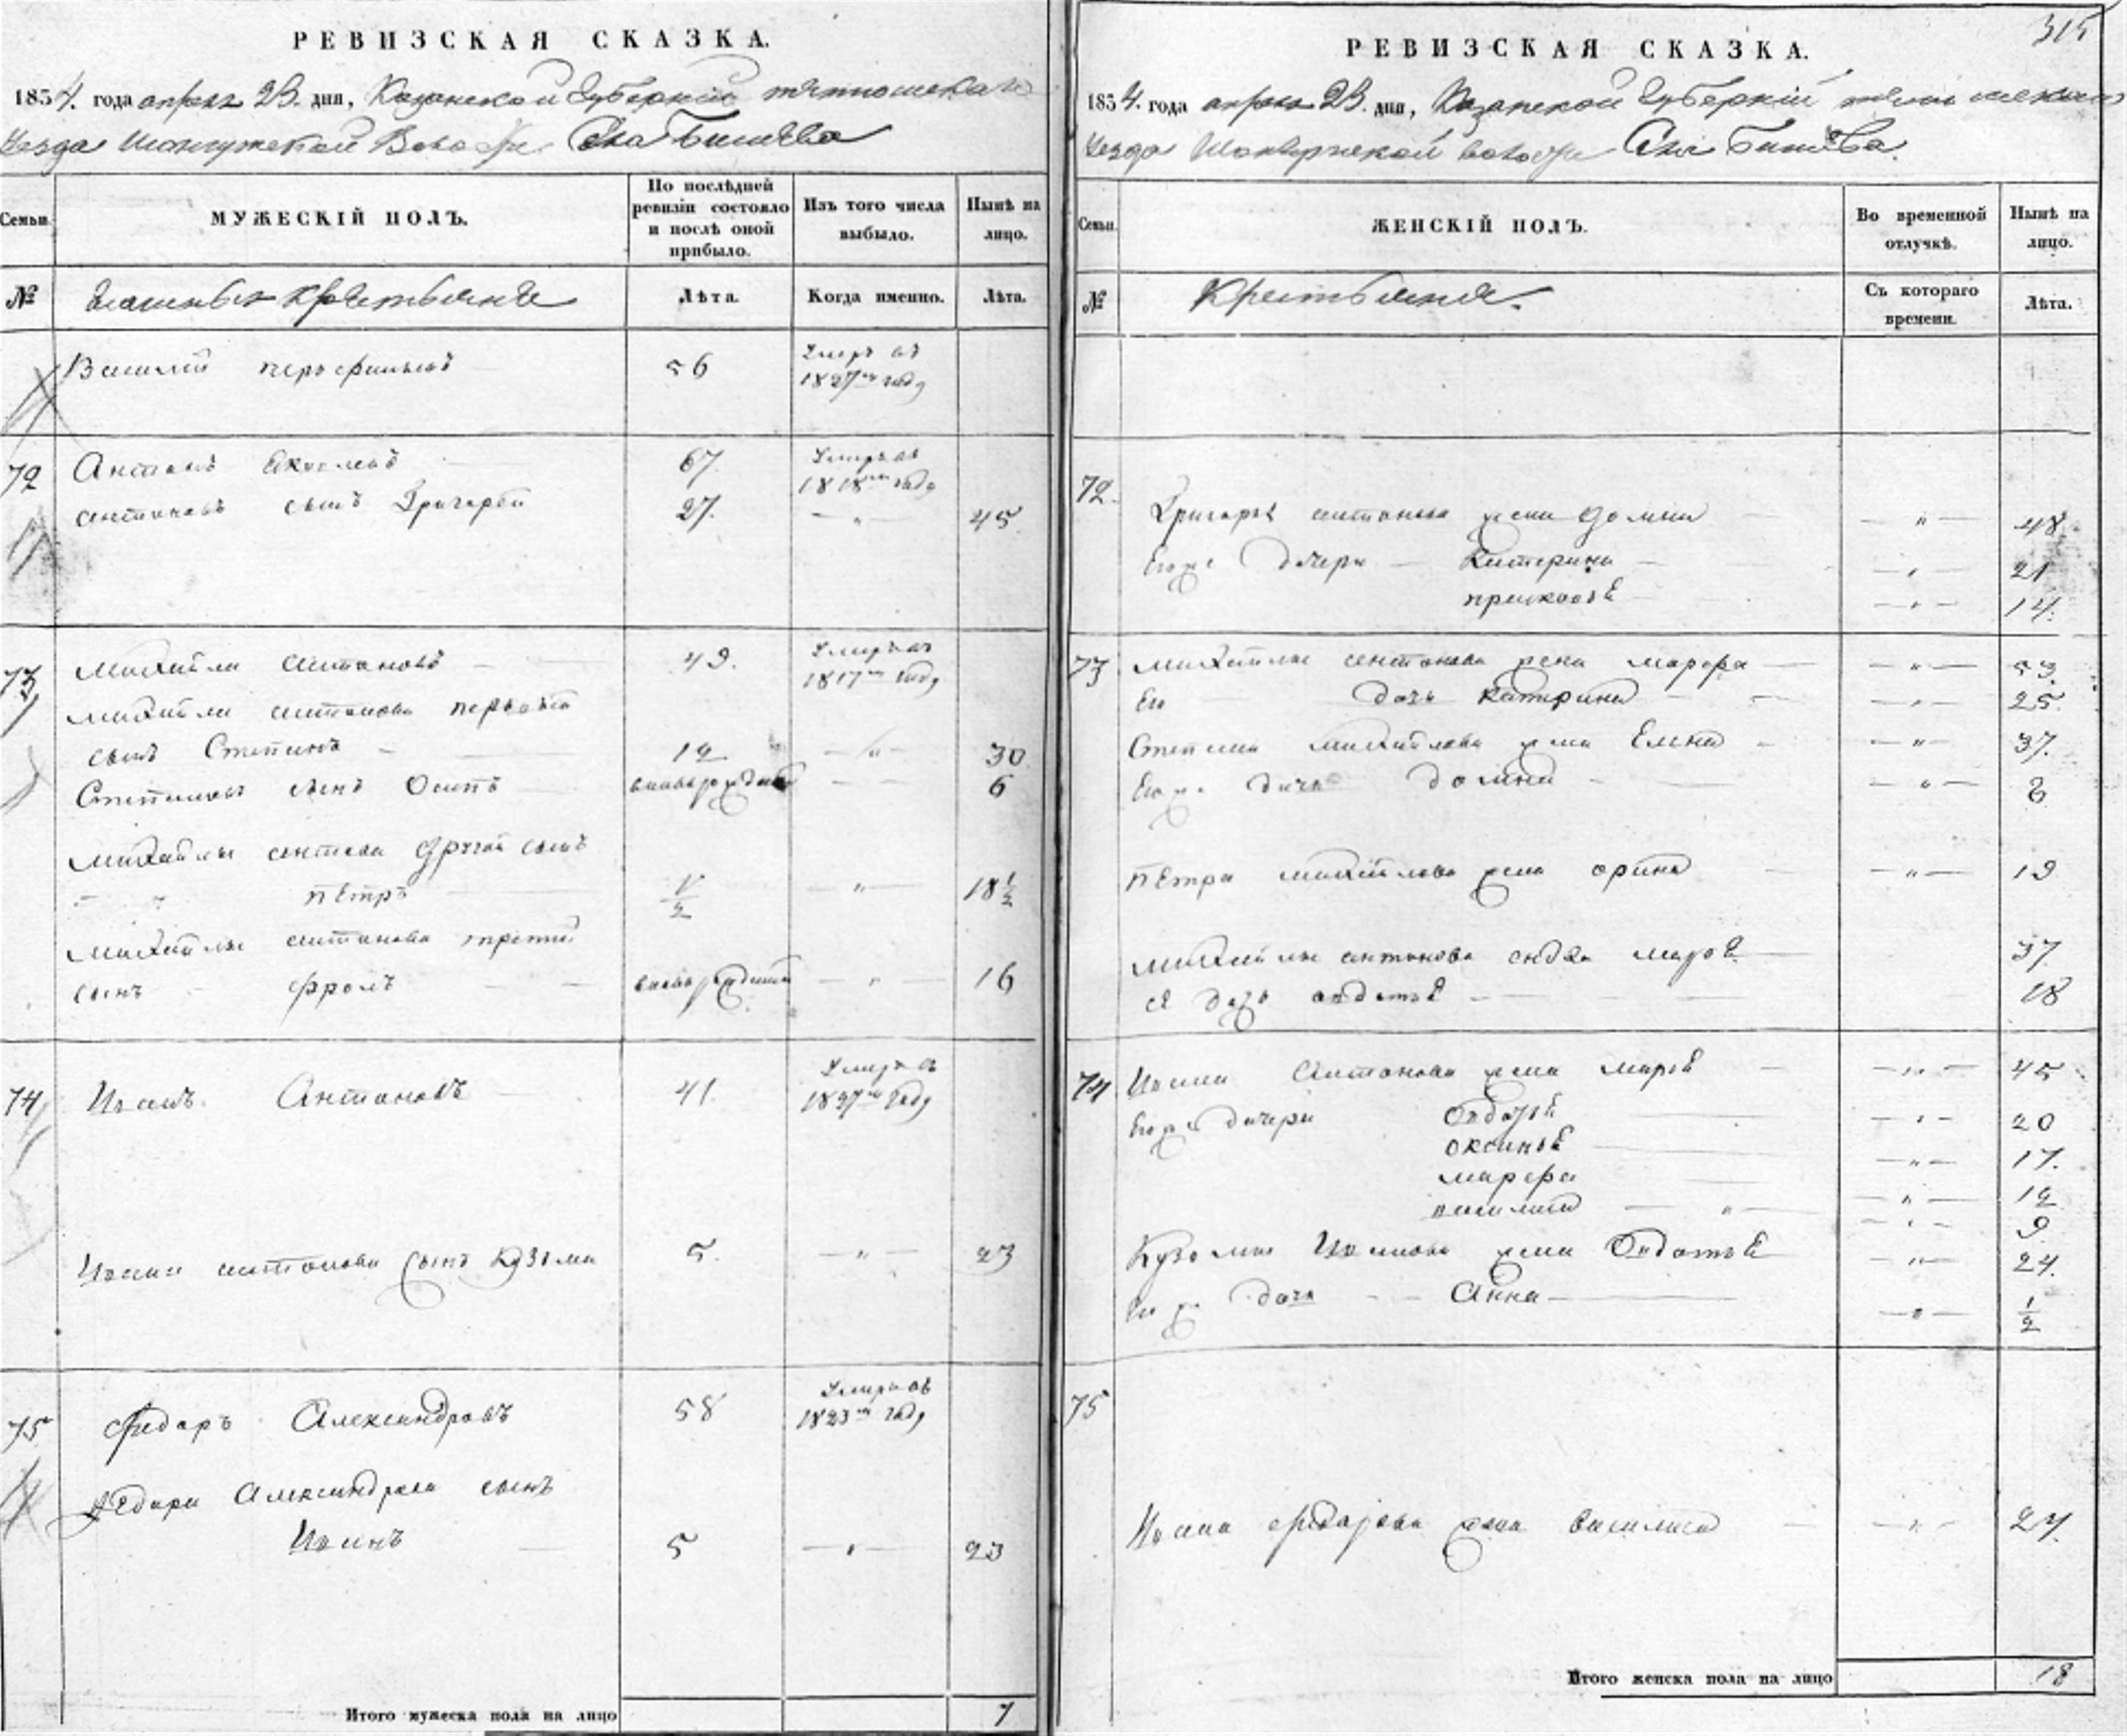 РЕВИЗСКАЯ СКАЗКА.
1834. года апреля 23. дня, Казанской Губерніи тетюшскаго
Уезда Волости Села
Семьи.
МУЖЕСКІЙ ПОЛЪ.
По послѣдней ревизіи состояло и послѣ оной прибыло.
Изъ того числа выбыло.
Нынѣ на лицо.
№
крестьяне
Лѣта.
Когда именно.
Лѣта.
Василий 56 Умеръ въ 1827 году
72 Антонъ Яковлевъ 67. Умеръ въ 1818 году
антоновъ сынъ Григорей 27. — " — 45
73 михайла антоновъ 49. Умеръ въ 1817 году
михайлы антонова первый
сынъ Степанъ 12 — " — 30
Степановъ сынъ Осипъ — — 6
михайлы антонова другой сынъ
петръ ½ — " — 18½
михайлы антонова третий
сынъ фролъ — " — 16
74 Иванъ Антоновъ 41. Умеръ въ 1827 году
Ивана антонова сынъ Кузьма 5. — " — 23
75 Федаръ Александровъ 58 Умеръ въ 1823 году
Федара Александрова сынъ
Иванъ 5 — " — 23
Итого мужеска пола на лицо 7
315
РЕВИЗСКАЯ СКАЗКА.
1834. года апреля 23. дня, Казанской Губерніи
Уезда волости Села
Семьи.
ЖЕНСКІЙ ПОЛЪ.
Во временной отлучкѣ.
Нынѣ на лицо.
№
Съ котораго времени.
Лѣта.
72. Григорья антонова жена домна — " — 48
Егоже дочери — Катерина — " — 21
прасковьЕ — " — 14.
73 михайлы антонова жена марфа — " — 53.
Его дочь катерина — " — 25.
Степана михайлова жена Елена — " — 37.
Егоже дочь домна — " — 8
пЕтра михайлова жена орина — " — 19
михайлы антонова марьЕ 37
еЕ дочь авдотьЕ 18
74 Ивана Антонова жена марьЕ — " — 45
Егоже дочери — " — 20
оксиньЕ — " — 17.
марфа — " — 12
василиса — " — 9
Кузьмы Иванова жена ОвдотьЕ — " — 24.
Егоже дочь — Анна — " — ½
75
Ивана федарова жена василиса — " — 24.
Итого женска пола на лицо 18